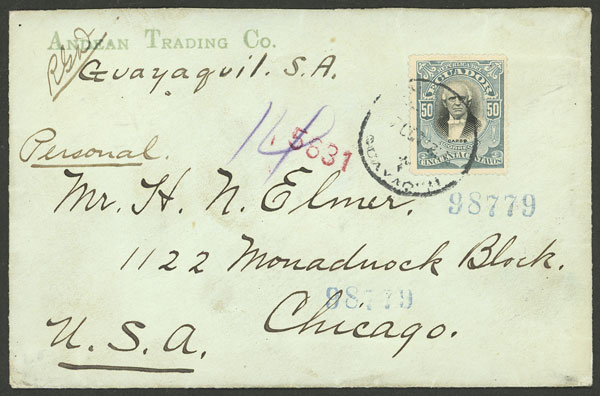 ANDEAN TRADING CO.
Rgd
Guayaquil. S.A.
ECUADOR
50 50
CINCUENTA CENTAVOS
GUAYAQUIL
14
5631
Personal.
Mr. H. N. Elmer.
98779
1122 Monadnock Block.
98779
Chicago.
U.S.A.